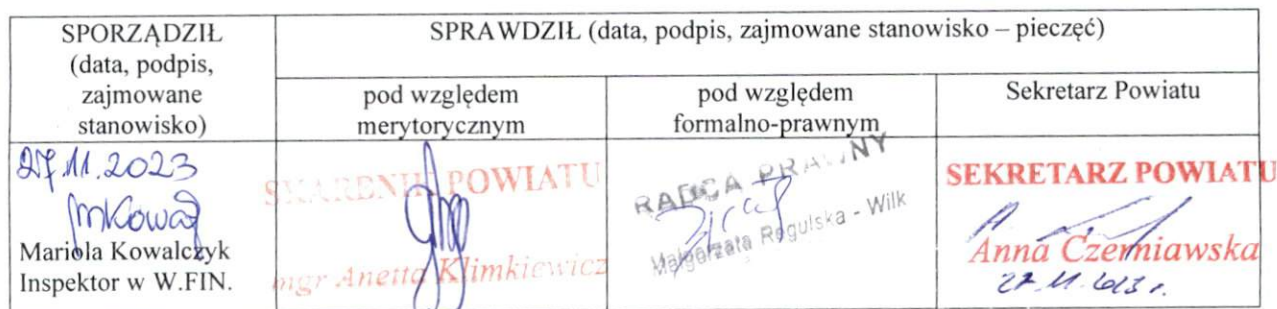 SPORZĄDZIŁ
(data, podpis,
zajmowane
stanowisko)
SPRAWDZIŁ (data, podpis, zajmowane stanowisko – pieczęć)
pod względem
merytorycznym
pod względem
formalno-prawnym
Sekretarz Powiatu
27.11.2023
MKowal
Mariola Kowalczyk
Inspektor w W.FIN.
SKARBNIK POWIATU
mgr Anetta Klimkiewicz
RADCA PRAWNY
Małgorzata Regulska - Wilk
SEKRETARZ POWIATU
Anna Czerniawska
27.11.2023 r.